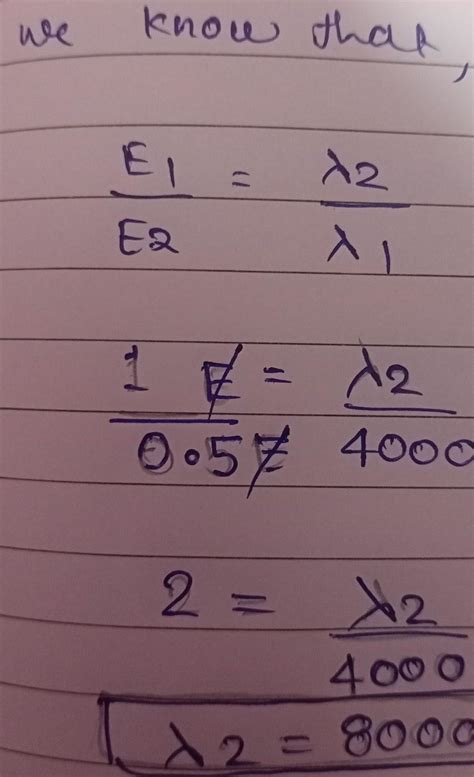 we know that,
E1 / E2 = λ2 / λ1
1 E / 0.5 E = λ2 / 4000
2 = λ2 / 4000
λ2 = 8000